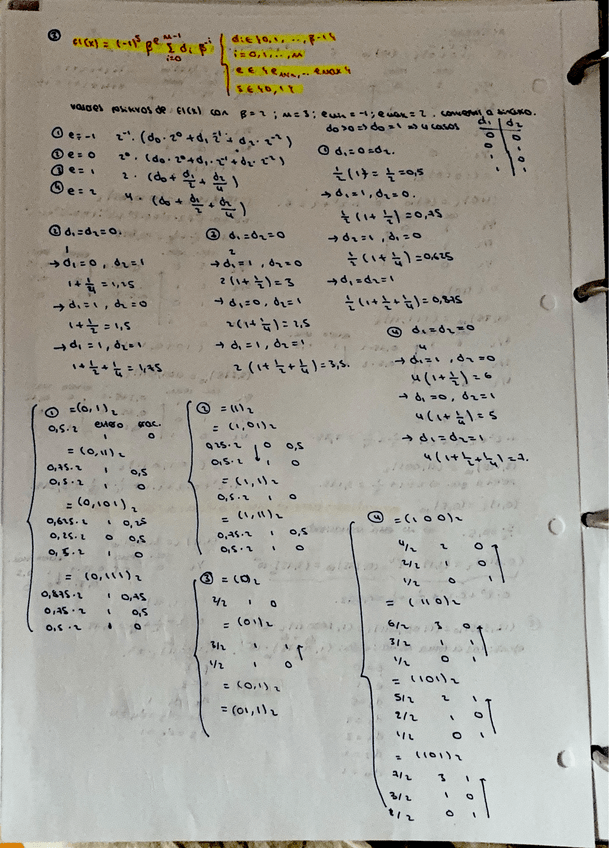 ② fl(x) = (-1)^s β^e Σ_{i=0}^{n-1} di β^{-i}
di ∈ {0,1,..., β-1}
i = 0,1,..., n
e ∈ {emin,... emax}
s ∈ {0,1}
valores positivos de fl(x) con β = 2; n = 3; emin = -1; emax = 2.
d0 > 0 => d0 = 1 => 4 casos
d1 d2
0 0
0 1
1 0
1 1
① e = -1 2^-1 · (d0 · 2^0 + d1 · 2^-1 + d2 · 2^-2)
② e = 0 2^0 · (d0 · 2^0 + d1 · 2^-1 + d2 · 2^-2)
③ e = 1 2 · (d0 + d1/2 + d2/4)
④ e = 2 4 · (d0 + d1/2 + d2/4)
① d1 = 0 = d2.
1/2 (1) = 1/2 = 0,5
→ d1 = 1, d2 = 0.
1/2 (1 + 1/2) = 0,75
→ d2 = 1, d1 = 0
1/2 (1 + 1/4) = 0,625
→ d1 = d2 = 1
1/2 (1 + 1/2 + 1/4) = 0,875
② d1 = d2 = 0.
1
→ d1 = 0, d2 = 1
1 + 1/4 = 1,25
→ d1 = 1, d2 = 0
1 + 1/2 = 1,5
→ d1 = 1, d2 = 1
1 + 1/2 + 1/4 = 1,75
③ d1 = d2 = 0
2
→ d1 = 1, d2 = 0
2(1 + 1/2) = 3
→ d1 = 0, d2 = 1
2(1 + 1/4) = 2,5
→ d1 = 1, d2 = 1
2(1 + 1/2 + 1/4) = 3,5.
④ d1 = d2 = 0
4
→ d1 = 1, d2 = 0
4(1 + 1/2) = 6
→ d1 = 0, d2 = 1
4(1 + 1/4) = 5
→ d1 = d2 = 1
4(1 + 1/2 + 1/4) = 7.
① = (0,1)2
entero frac.
0,5·2 1 0
= (0,11)2
0,75·2 1 0,5
0,5·2 1 0
= (0,101)2
0,625·2 1 0,25
0,25·2 0 0,5
0,5·2 1 0
= (0,111)2
0,875·2 1 0,75
0,75·2 1 0,5
0,5·2 1 0
② = (1)2
= (1,01)2
0,25·2 0 0,5
0,5·2 1 0
= (1,1)2
0,5·2 1 0
= (1,11)2
0,75·2 1 0,5
0,5·2 1 0
③
2/2 1 0
= (01)2
3/2 1 1
1/2 1 0
= (0,1)2
= (01,1)2
④ = (100)2
4/2 2 0
2/2 1 0
1/2 0 1
= (110)2
6/2 3 0
3/2 1 1
1/2 0 1
= (101)2
5/2 2 1
2/2 1 0
1/2 0 1
= (101)2
7/2 3 1
3/2 1 0
1/2 0 1